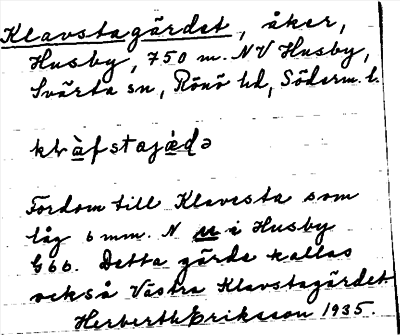 Klavstagärdet, åker,
Husby, 750 m. NV Husby,
Svärta sn, Rönö hd, Söderm. l.
klàfstajæ̀də
Fordom till Klavesta som
låg 6 mm. N u i Husby
G66. Detta gärde kallas
också Västra Klavstagärdet
Herbert Eriksson 1935.